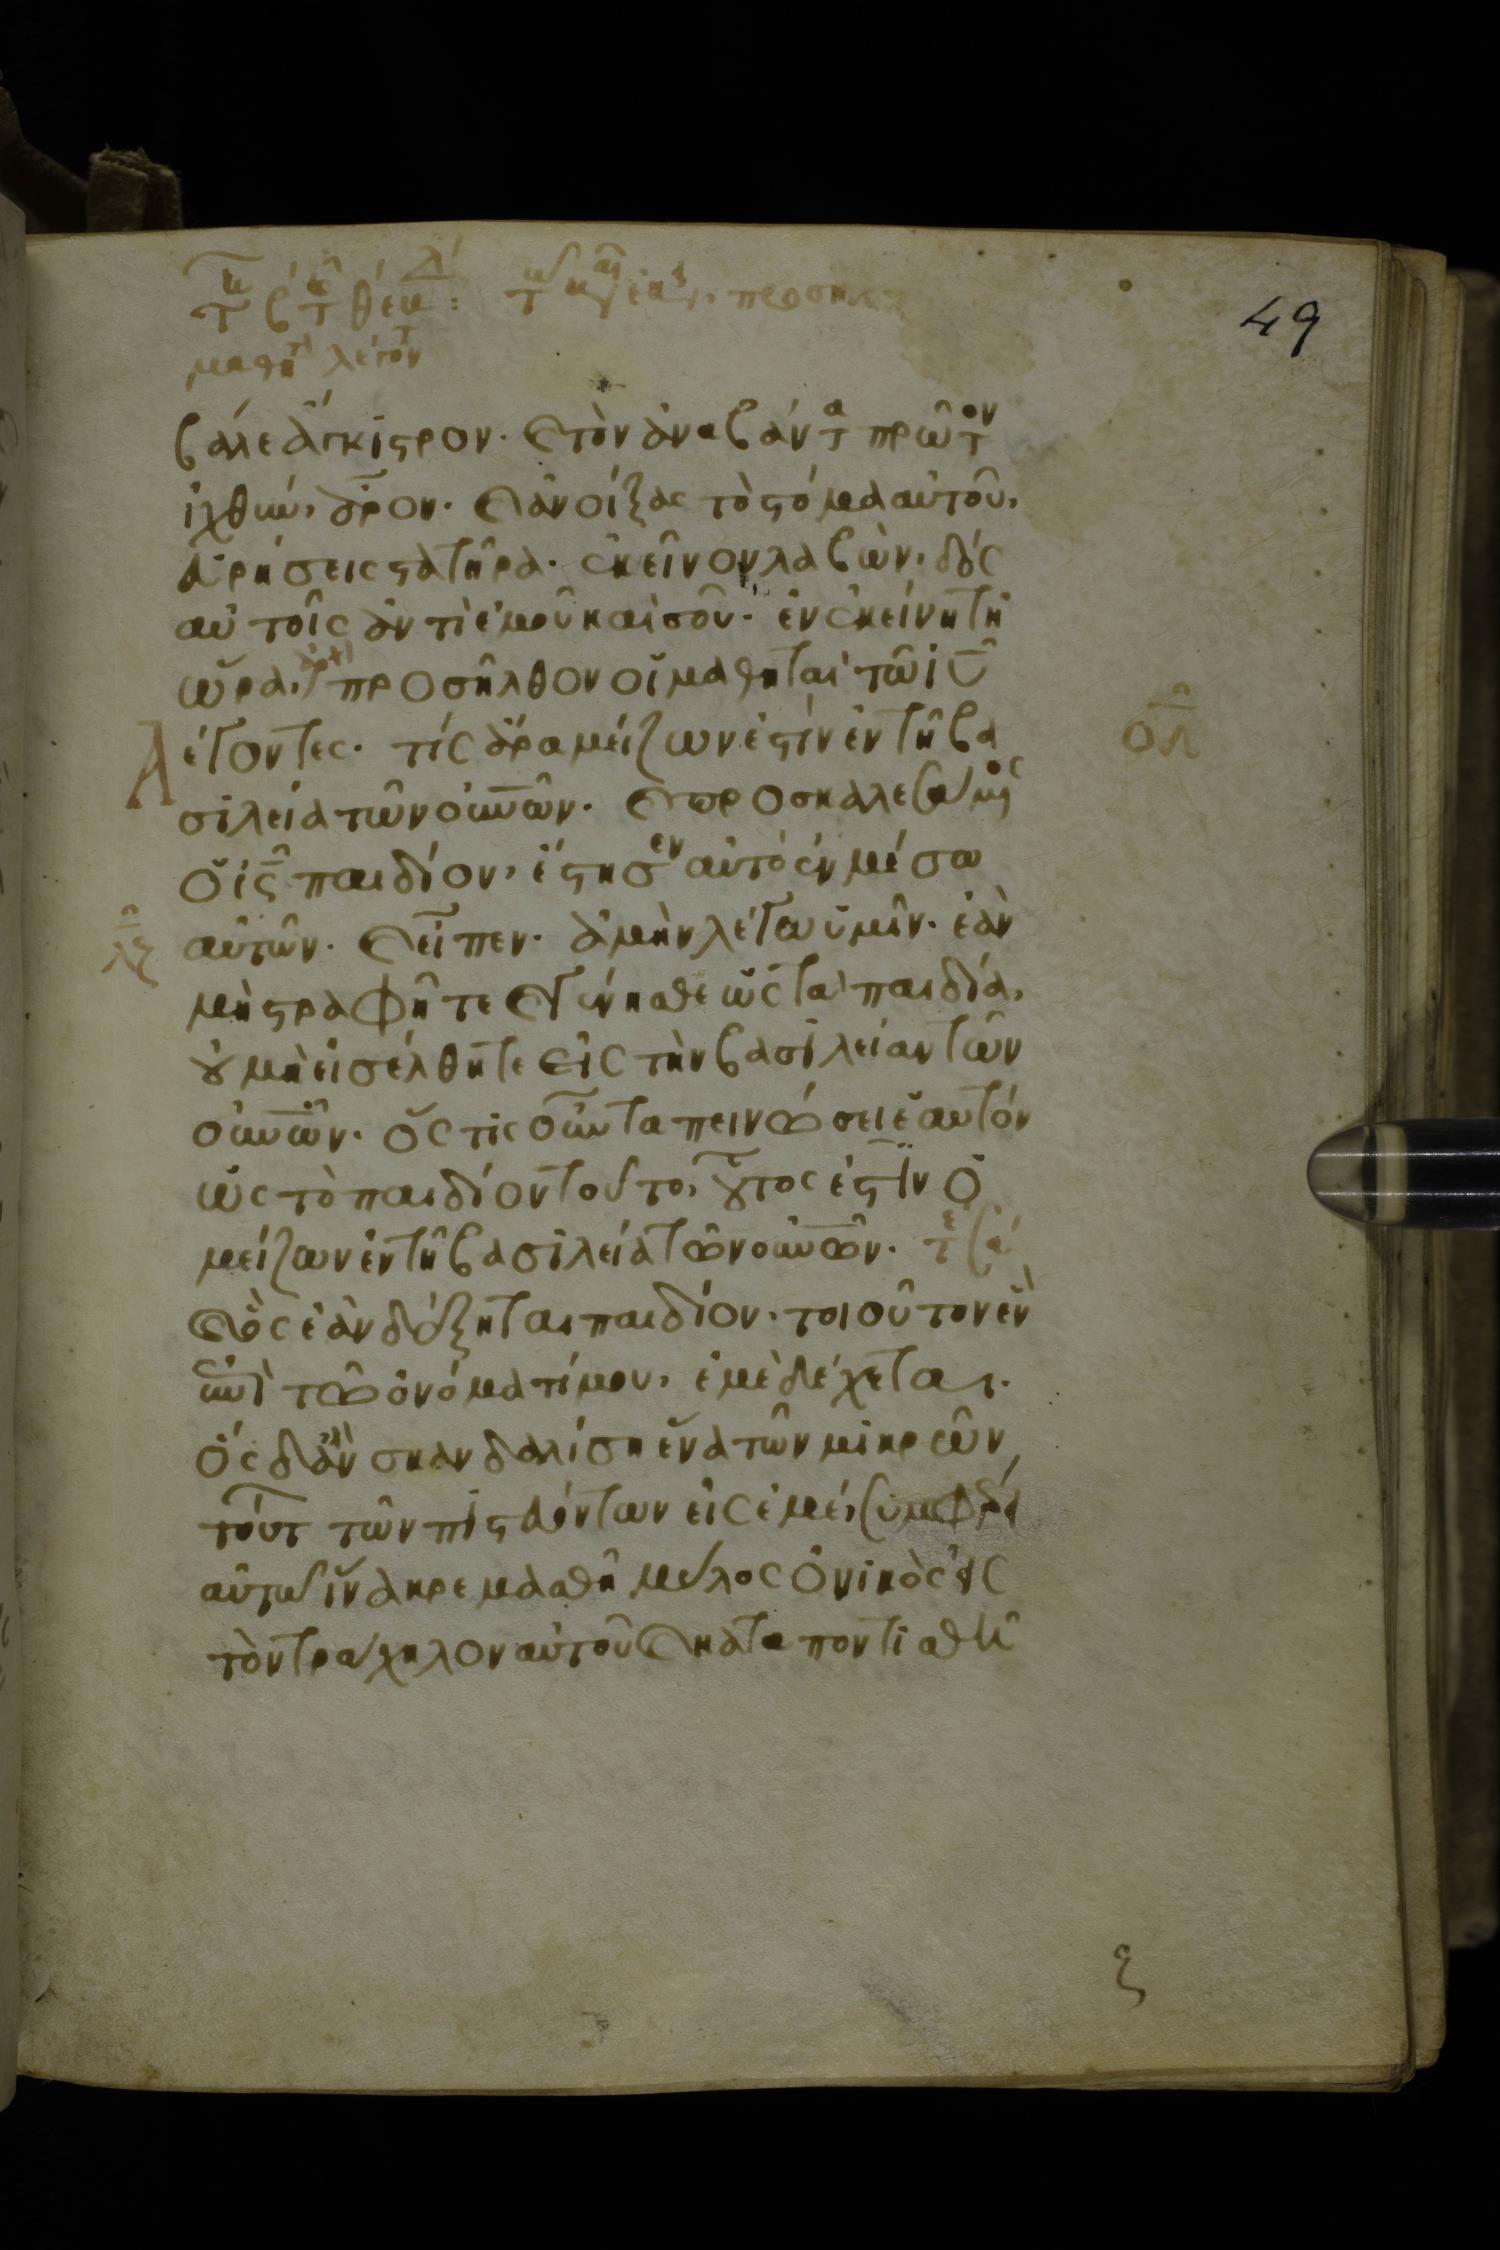 49
βάλε ἄγκιστρον. καὶ τὸν ἀναβάντα πρῶτον
ἰχθὺν, ἆρον. καὶ ἀνοίξας τὸ στόμα αὐτοῦ,
εὑρήσεις στατῆρα. ἐκεῖνον λαβὼν, δὸς
αὐτοῖς ἀντὶ ἐμοῦ καὶ σοῦ. ἐν ἐκείνη τῆ
ὥρα, προσῆλθον οἱ μαθηταὶ τῶ ιυ
λέγοντες. τίς ἄρα μείζων ἐστὶν ἐν τῆ βα
σιλεία τῶν οὐνῶν. καὶ προσκαλεσάμενος
ὁ ις παιδίον, ἔστησεν αὐτὸ ἐν μέσω
αὐτῶν. καὶ εἶπεν. ἀμὴν λέγω ὑμῖν. ἐὰν
μὴ στραφῆτε καὶ γένησθε ὡς τὰ παιδία,
οὐ μὴ εἰσέλθητε εἰς τὴν βασιλείαν τῶν
οὐνῶν. ὅστις οὖν ταπεινώσει ἑαυτόν
ὡς τὸ παιδίον τοῦτο, οὗτός ἐστιν ὁ
μείζων ἐν τῆ βασιλεία τῶν οὐνῶν.
καὶ ὃς ἐὰν δέξηται παιδίον. τοιοῦτον ἓν
ἐπὶ τῶ ὀνόματί μου, ἐμὲ δέχεται.
ὃς δ' ἂν σκανδαλίση ἕνα τῶν μικρῶν
τούτων τῶν πιστευόντων εἰς ἐμέ, συμφέρει
αὐτῶ ἵνα κρεμασθῆ μύλος ὀνικὸς εἰς
τὸν τράχηλον αὐτοῦ καὶ καταποντισθῆ